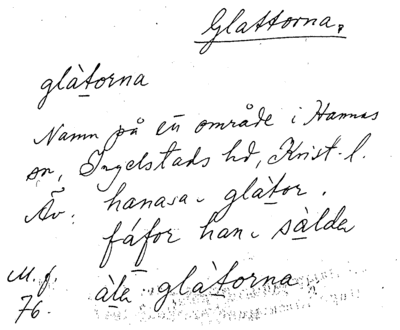 Glattorna.
glàtorna
Namn på en område i Hannas
sn, Ingelstads hd, Krist. l.
Äv. hanasa glàtor.
fáfor han sàlda
àla glàtorna
M. f.
76.